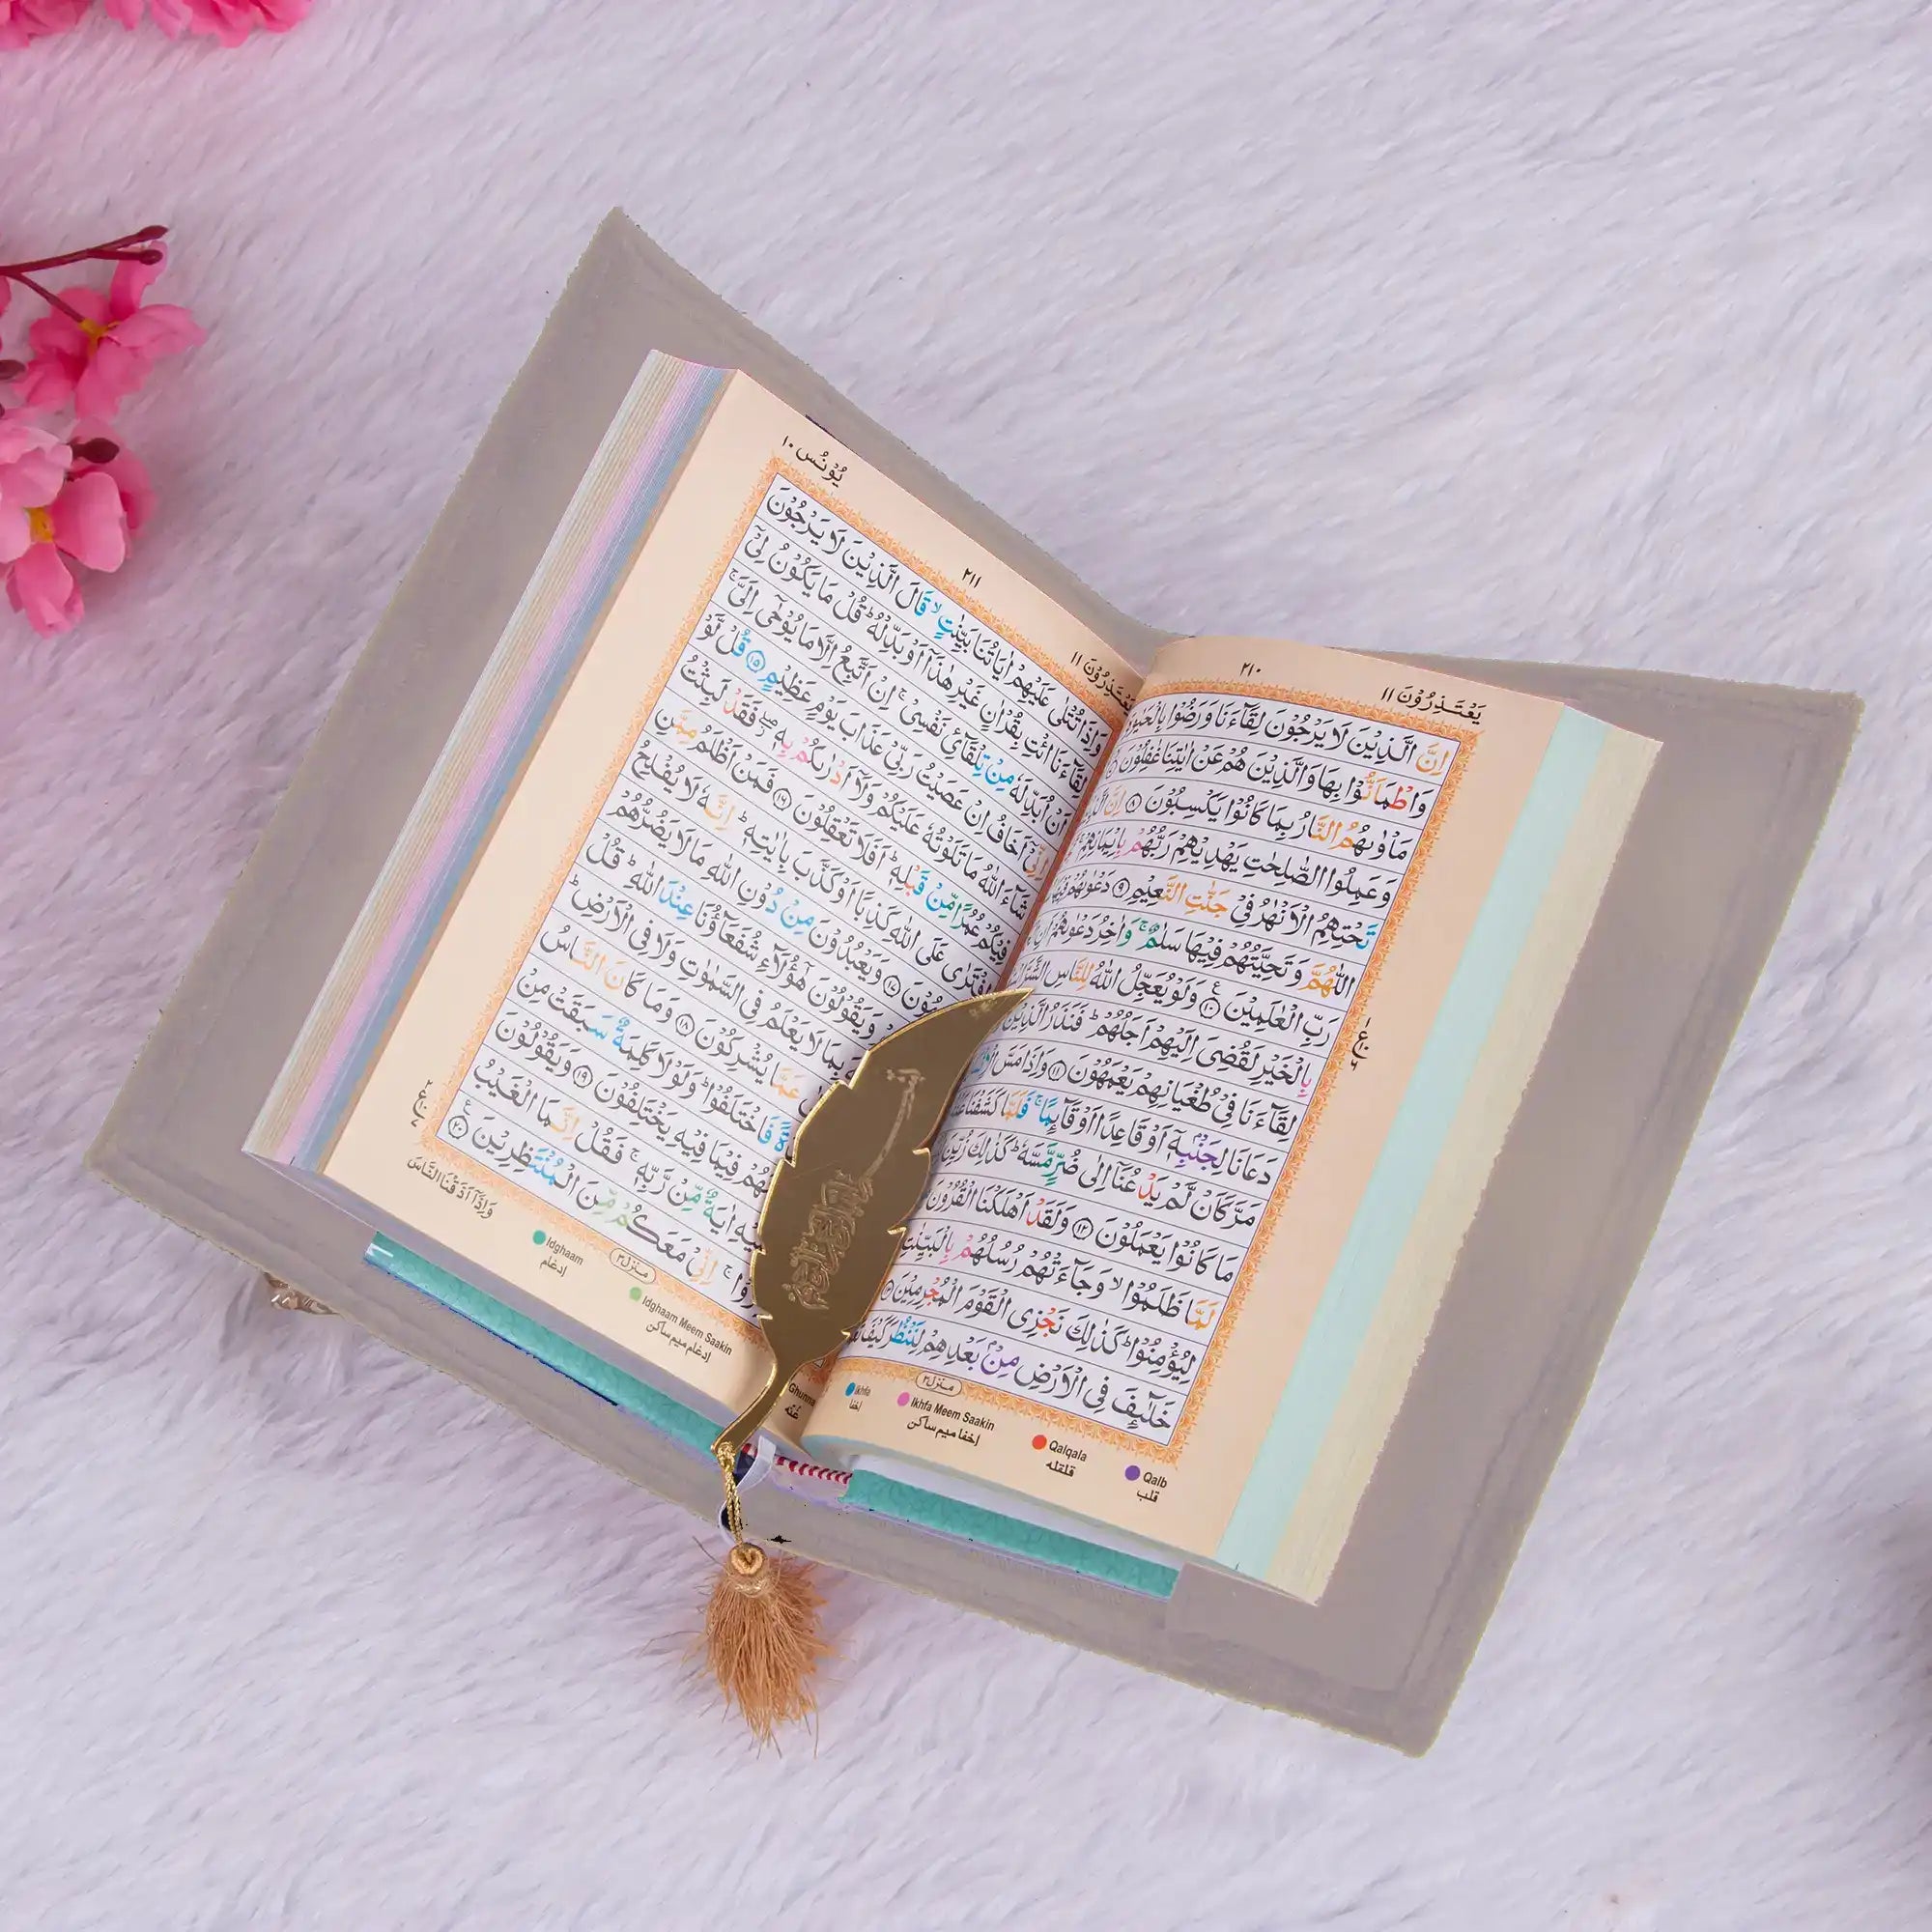 يَعْتَذِرُوْنَ ١١
٢١٠
اِنَّ الَّذِيْنَ لَا يَرْجُوْنَ لِقَآءَنَا وَرَضُوْا
وَاطْمَاَنُّوْا بِهَا وَالَّذِيْنَ هُمْ عَنْ اٰيٰتِنَا غٰفِلُوْنَ
مَاْوٰىهُمُ النَّارُ بِمَا كَانُوْا يَكْسِبُوْنَ ۝٨ اِنَّ
وَعَمِلُوا الصّٰلِحٰتِ يَهْدِيْهِمْ رَبُّهُمْ بِاِيْمَانِهِمْ
تَحْتِهِمُ الْاَنْهٰرُ فِيْ جَنّٰتِ النَّعِيْمِ ۝٩ دَعْوٰىهُمْ
اللّٰهُمَّ وَتَحِيَّتُهُمْ فِيْهَا سَلٰمٌ ۚ وَاٰخِرُ دَعْوٰىهُمْ
رَبِّ الْعٰلَمِيْنَ ۝١٠ وَلَوْ يُعَجِّلُ اللّٰهُ لِلنَّاسِ الشَّرَّ
بِالْخَيْرِ لَقُضِيَ اِلَيْهِمْ اَجَلُهُمْ ؕ فَنَذَرُ الَّذِيْنَ
لِقَآءَنَا فِيْ طُغْيَانِهِمْ يَعْمَهُوْنَ ۝١١ وَاِذَا مَسَّ
دَعَانَا لِجَنْۢبِهٖۤ اَوْ قَاعِدًا اَوْ قَآئِمًا ۚ فَلَمَّا كَشَفْنَا
مَرَّ كَاَنْ لَّمْ يَدْعُنَاۤ اِلٰى ضُرٍّ مَّسَّهٗ ؕ كَذٰلِكَ زُيِّنَ
مَا كَانُوْا يَعْمَلُوْنَ ۝١٢ وَلَقَدْ اَهْلَكْنَا الْقُرُوْنَ
لَمَّا ظَلَمُوْا ۙ وَجَآءَتْهُمْ رُسُلُهُمْ بِالْبَيِّنٰتِ
لِيُؤْمِنُوْا ؕ كَذٰلِكَ نَجْزِي الْقَوْمَ الْمُجْرِمِيْنَ
خَلٰٓئِفَ فِي الْاَرْضِ مِنْۢ بَعْدِهِمْ لِنَنْظُرَ كَيْفَ
منزل٣
Ikhfa
إخفا
Ikhfa Meem Saakin
إخفا ميم ساكن
Qalqala
قلقله
Qalb
قلب
يَعْتَذِرُوْنَ ١١
٢١١
يُوْنُس ١٠
وَاِذَا تُتْلٰى عَلَيْهِمْ اٰيَاتُنَا بَيِّنٰتٍ ۙ قَالَ الَّذِيْنَ لَا يَرْجُوْنَ
لِقَآءَنَا ائْتِ بِقُرْاٰنٍ غَيْرِ هٰذَاۤ اَوْ بَدِّلْهُ ؕ قُلْ مَا يَكُوْنُ لِيْۤ
اَنْ اُبَدِّلَهٗ مِنْ تِلْقَآئِ نَفْسِيْ ۚ اِنْ اَتَّبِعُ اِلَّا مَا يُوْحٰۤى اِلَيَّ ۚ
اِنِّيْۤ اَخَافُ اِنْ عَصَيْتُ رَبِّيْ عَذَابَ يَوْمٍ عَظِيْمٍ ۝١٥ قُلْ لَّوْ
شَآءَ اللّٰهُ مَا تَلَوْتُهٗ عَلَيْكُمْ وَلَاۤ اَدْرٰىكُمْ بِهٖ ۖ فَقَدْ لَبِثْتُ
فِيْكُمْ عُمُرًا مِّنْ قَبْلِهٖ ؕ اَفَلَا تَعْقِلُوْنَ ۝١٦ فَمَنْ اَظْلَمُ مِمَّنِ
افْتَرٰى عَلَى اللّٰهِ كَذِبًا اَوْ كَذَّبَ بِاٰيٰتِهٖ ؕ اِنَّهٗ لَا يُفْلِحُ
۝١٧ وَيَعْبُدُوْنَ مِنْ دُوْنِ اللّٰهِ مَا لَا يَضُرُّهُمْ
وَيَقُوْلُوْنَ هٰۤؤُلَآءِ شُفَعَآؤُنَا عِنْدَ اللّٰهِ ؕ قُلْ
بِمَا لَا يَعْلَمُ فِي السَّمٰوٰتِ وَلَا فِي الْاَرْضِ ؕ
عَمَّا يُشْرِكُوْنَ ۝١٨ وَمَا كَانَ النَّاسُ
فَاخْتَلَفُوْا ؕ وَلَوْلَا كَلِمَةٌ سَبَقَتْ مِنْ
فِيْمَا فِيْهِ يَخْتَلِفُوْنَ ۝١٩ وَيَقُوْلُوْنَ
اٰيَةٌ مِّنْ رَّبِّهٖ ۚ فَقُلْ اِنَّمَا الْغَيْبُ
اِنِّيْ مَعَكُمْ مِّنَ الْمُنْتَظِرِيْنَ ۝٢٠
وَاِذَاۤ اَذَقْنَا النَّاسَ
منزل٣
Idghaam
إدغام
Idghaam Meem Saakin
إدغام ميم ساكن
غُنّه